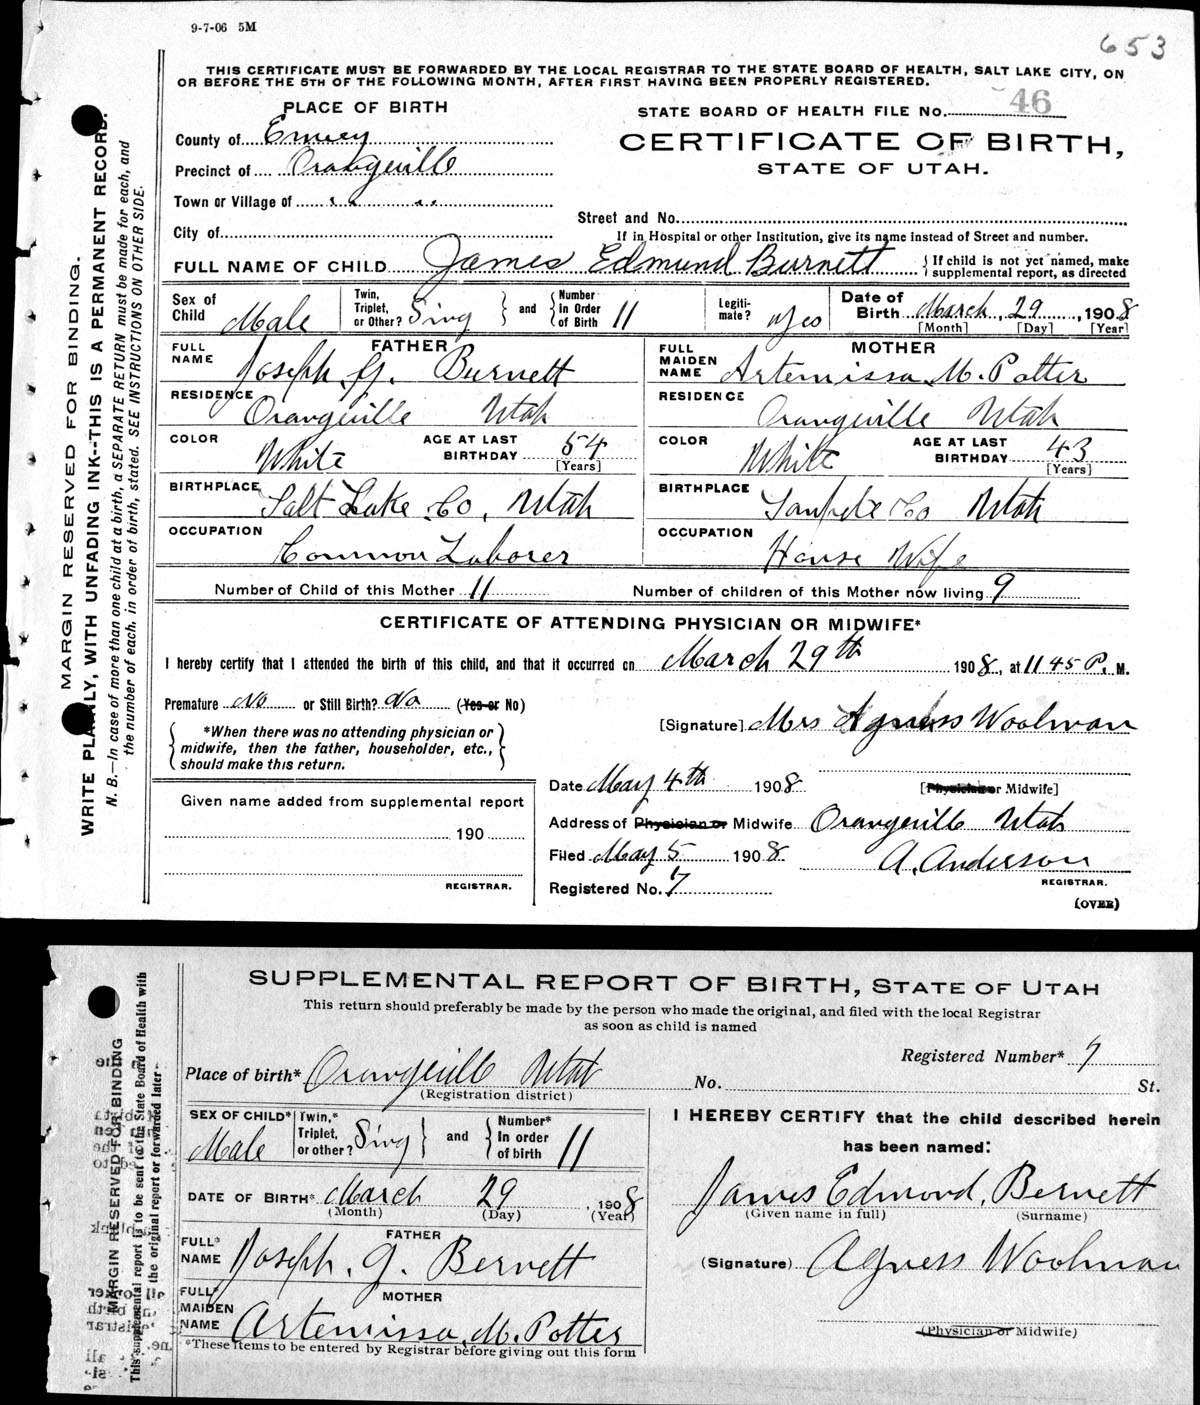 9-7-06 5M
653
THIS CERTIFICATE MUST BE FORWARDED BY THE LOCAL REGISTRAR TO THE STATE BOARD OF HEALTH, SALT LAKE CITY, ON
OR BEFORE THE 5TH OF THE FOLLOWING MONTH, AFTER FIRST HAVING BEEN PROPERLY REGISTERED.
PLACE OF BIRTH
STATE BOARD OF HEALTH FILE No. 46
County of Emery
CERTIFICATE OF BIRTH,
Precinct of Orangeville
STATE OF UTAH.
Town or Village of " "
Street and No.
City of
If in Hospital or other Institution, give its name instead of Street and number.
FULL NAME OF CHILD James Edmund Burnett { If child is not yet named, make
supplemental report, as directed
Sex of Child Male Twin, Triplet, or Other? Sing and Number In Order of Birth 11 Legiti- mate? Yes Date of Birth March 29, 1908
[Month] [Day] [Year]
FATHER MOTHER
FULL NAME Joseph G. Burnett FULL MAIDEN NAME Artemissa M. Potter
RESIDENCE Orangeville Utah RESIDENCE Orangeville Utah
COLOR White AGE AT LAST BIRTHDAY 54 [Years] COLOR White AGE AT LAST BIRTHDAY 43 [Years]
BIRTHPLACE Salt Lake Co, Utah BIRTHPLACE Sanpete Co Utah
OCCUPATION Common Laborer OCCUPATION House Wife
Number of Child of this Mother 11 Number of children of this Mother now living 9
CERTIFICATE OF ATTENDING PHYSICIAN OR MIDWIFE*
I hereby certify that I attended the birth of this child, and that it occurred on March 29th 1908, at 11 45 P. M.
Premature No or Still Birth? No (Yes or No)
[Signature] Mrs Agness Woolman
*When there was no attending physician or
midwife, then the father, householder, etc.,
should make this return.
Date May 4th 1908 [Physician or Midwife]
Given name added from supplemental report
Address of Physician or Midwife Orangeville Utah
190
Filed May 5 1908 A. Anderson
REGISTRAR. REGISTRAR.
Registered No. 7
(OVER)
MARGIN RESERVED FOR BINDING.
WRITE PLAINLY, WITH UNFADING INK--THIS IS A PERMANENT RECORD.
N. B.—In case of more than one child at a birth, a SEPARATE RETURN must be made for each, and
the number of each, in order of birth, stated. SEE INSTRUCTIONS ON OTHER SIDE.
SUPPLEMENTAL REPORT OF BIRTH, STATE OF UTAH
This return should preferably be made by the person who made the original, and filed with the local Registrar
as soon as child is named
Registered Number* 7
Place of birth* Orangeville Utah No. St.
(Registration district)
SEX OF CHILD* Male Twin,* Triplet, or other? Sing and Number* In order of birth 11
I HEREBY CERTIFY that the child described herein
has been named:
DATE OF BIRTH* March 29, 1908
(Month) (Day) (Year)
James Edmond, Bernett
(Given name in full) (Surname)
FATHER
FULL* NAME Joseph. G. Bernett
(Signature) Agness Woolman
MOTHER
FULL* MAIDEN NAME Artemissa, M. Potter
(Physician or Midwife)
*These items to be entered by Registrar before giving out this form
MARGIN RESERVED FOR BINDING
This supplemental report is to be sent to the State Board of Health with
the original report or forwarded later